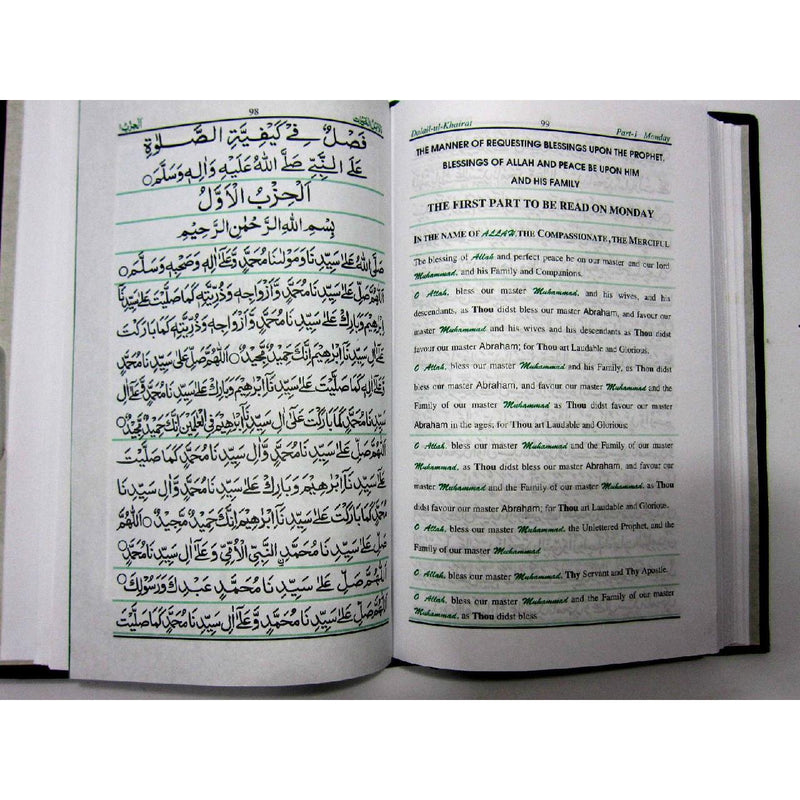 98
الحزب
فَصْلٌ فِيْ كَيْفِيَّةِ الصَّلٰوةِ
عَلَى النَّبِيِّ صَلَّى اللهُ عَلَيْهِ وَاٰلِهٖ وَسَلَّمَ○
اَلْحِزْبُ الْاَوَّلُ
بِسْمِ اللهِ الرَّحْمٰنِ الرَّحِيْمِ
صَلَّى اللهُ عَلٰى سَيِّدِنَا وَمَوْلٰنَا مُحَمَّدٍ وَّعَلٰى اٰلِهٖ وَصَحْبِهٖ وَسَلَّمَ○
اَللّٰهُمَّ صَلِّ عَلٰى سَيِّدِنَا مُحَمَّدٍ وَّاَزْوَاجِهٖ وَذُرِّيَّتِهٖ كَمَا صَلَّيْتَ عَلٰى سَيِّدِنَا
اِبْرٰهِيْمَ وَبَارِكْ عَلٰى سَيِّدِنَا مُحَمَّدٍ وَّاَزْوَاجِهٖ وَذُرِّيَّتِهٖ كَمَا بَارَكْتَ
عَلٰى اٰلِ سَيِّدِنَا اِبْرٰهِيْمَ اِنَّكَ حَمِيْدٌ مَّجِيْدٌ○ اَللّٰهُمَّ صَلِّ عَلٰى سَيِّدِنَا مُحَمَّدٍ
وَّعَلٰى اٰلِهٖ كَمَا صَلَّيْتَ عَلٰى سَيِّدِنَا اِبْرٰهِيْمَ وَبَارِكْ عَلٰى سَيِّدِنَا مُحَمَّدٍ وَّعَلٰى اٰلِ
سَيِّدِنَا مُحَمَّدٍ كَمَا بَارَكْتَ عَلٰى اٰلِ سَيِّدِنَا اِبْرٰهِيْمَ فِي الْعٰلَمِيْنَ اِنَّكَ حَمِيْدٌ مَّجِيْدٌ○
اَللّٰهُمَّ صَلِّ عَلٰى سَيِّدِنَا مُحَمَّدٍ وَّاٰلِ سَيِّدِنَا مُحَمَّدٍ كَمَا صَلَّيْتَ
عَلٰى سَيِّدِنَا اِبْرٰهِيْمَ وَبَارِكْ عَلٰى سَيِّدِنَا مُحَمَّدٍ وَّاٰلِ سَيِّدِنَا
مُحَمَّدٍ كَمَا بَارَكْتَ عَلٰى سَيِّدِنَا اِبْرٰهِيْمَ اِنَّكَ حَمِيْدٌ مَّجِيْدٌ○ اَللّٰهُمَّ
صَلِّ عَلٰى سَيِّدِنَا مُحَمَّدِ ۨالنَّبِيِّ الْاُمِّيِّ وَعَلٰى اٰلِ سَيِّدِنَا مُحَمَّدٍ○
اَللّٰهُمَّ صَلِّ عَلٰى سَيِّدِنَا مُحَمَّدٍ عَبْدِكَ وَرَسُوْلِكَ○
اَللّٰهُمَّ صَلِّ عَلٰى سَيِّدِنَا مُحَمَّدٍ وَّعَلٰى اٰلِ سَيِّدِنَا مُحَمَّدٍ كَمَا صَلَّيْتَ
Dalail-ul-Khairat 99 Part-i Monday
THE MANNER OF REQUESTING BLESSINGS UPON THE PROPHET,
BLESSINGS OF ALLAH AND PEACE BE UPON HIM
AND HIS FAMILY
THE FIRST PART TO BE READ ON MONDAY
IN THE NAME OF ALLAH, THE COMPASSIONATE, THE MERCIFUL
The blessing of Allah and perfect peace be on our master and our lord
Muhammad, and his Family and Companions.
O Allah, bless our master Muhammad, and his wives, and his
descendants, as Thou didst bless our master Abraham, and favour our
master Muhammad and his wives and his descendants as Thou didst
favour our master Abraham; for Thou art Laudable and Glorious.
O Allah, bless our master Muhammad and his Family, as Thou didst
bless our master Abraham, and favour our master Muhammad and the
Family of our master Muhammad as Thou didst favour our master
Abraham in the ages; for Thou art Laudable and Glorious;
O Allah, bless our master Muhammad and the Family of our master
Muhammad, as Thou didst bless our master Abraham, and favour our
master Muhammad and the Family of our master Muhammad, as Thou
didst favour our master Abraham; for Thou art Laudable and Glorious.
O Allah, bless our master Muhammad, the Unlettered Prophet, and the
Family of our master Muhammad
O Allah, bless our master Muhammad, Thy Servant and Thy Apostle.
O Allah, bless our master Muhammad and the Family of our master
Muhammad, as Thou didst bless